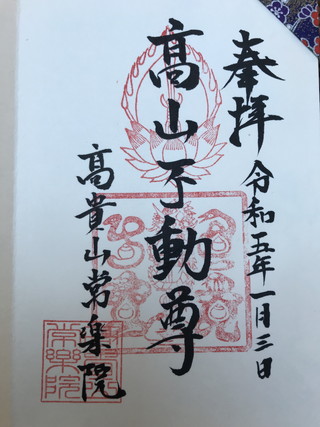 奉拝
令和五年一月三日
高山不動尊
高貴山常楽院
常樂院